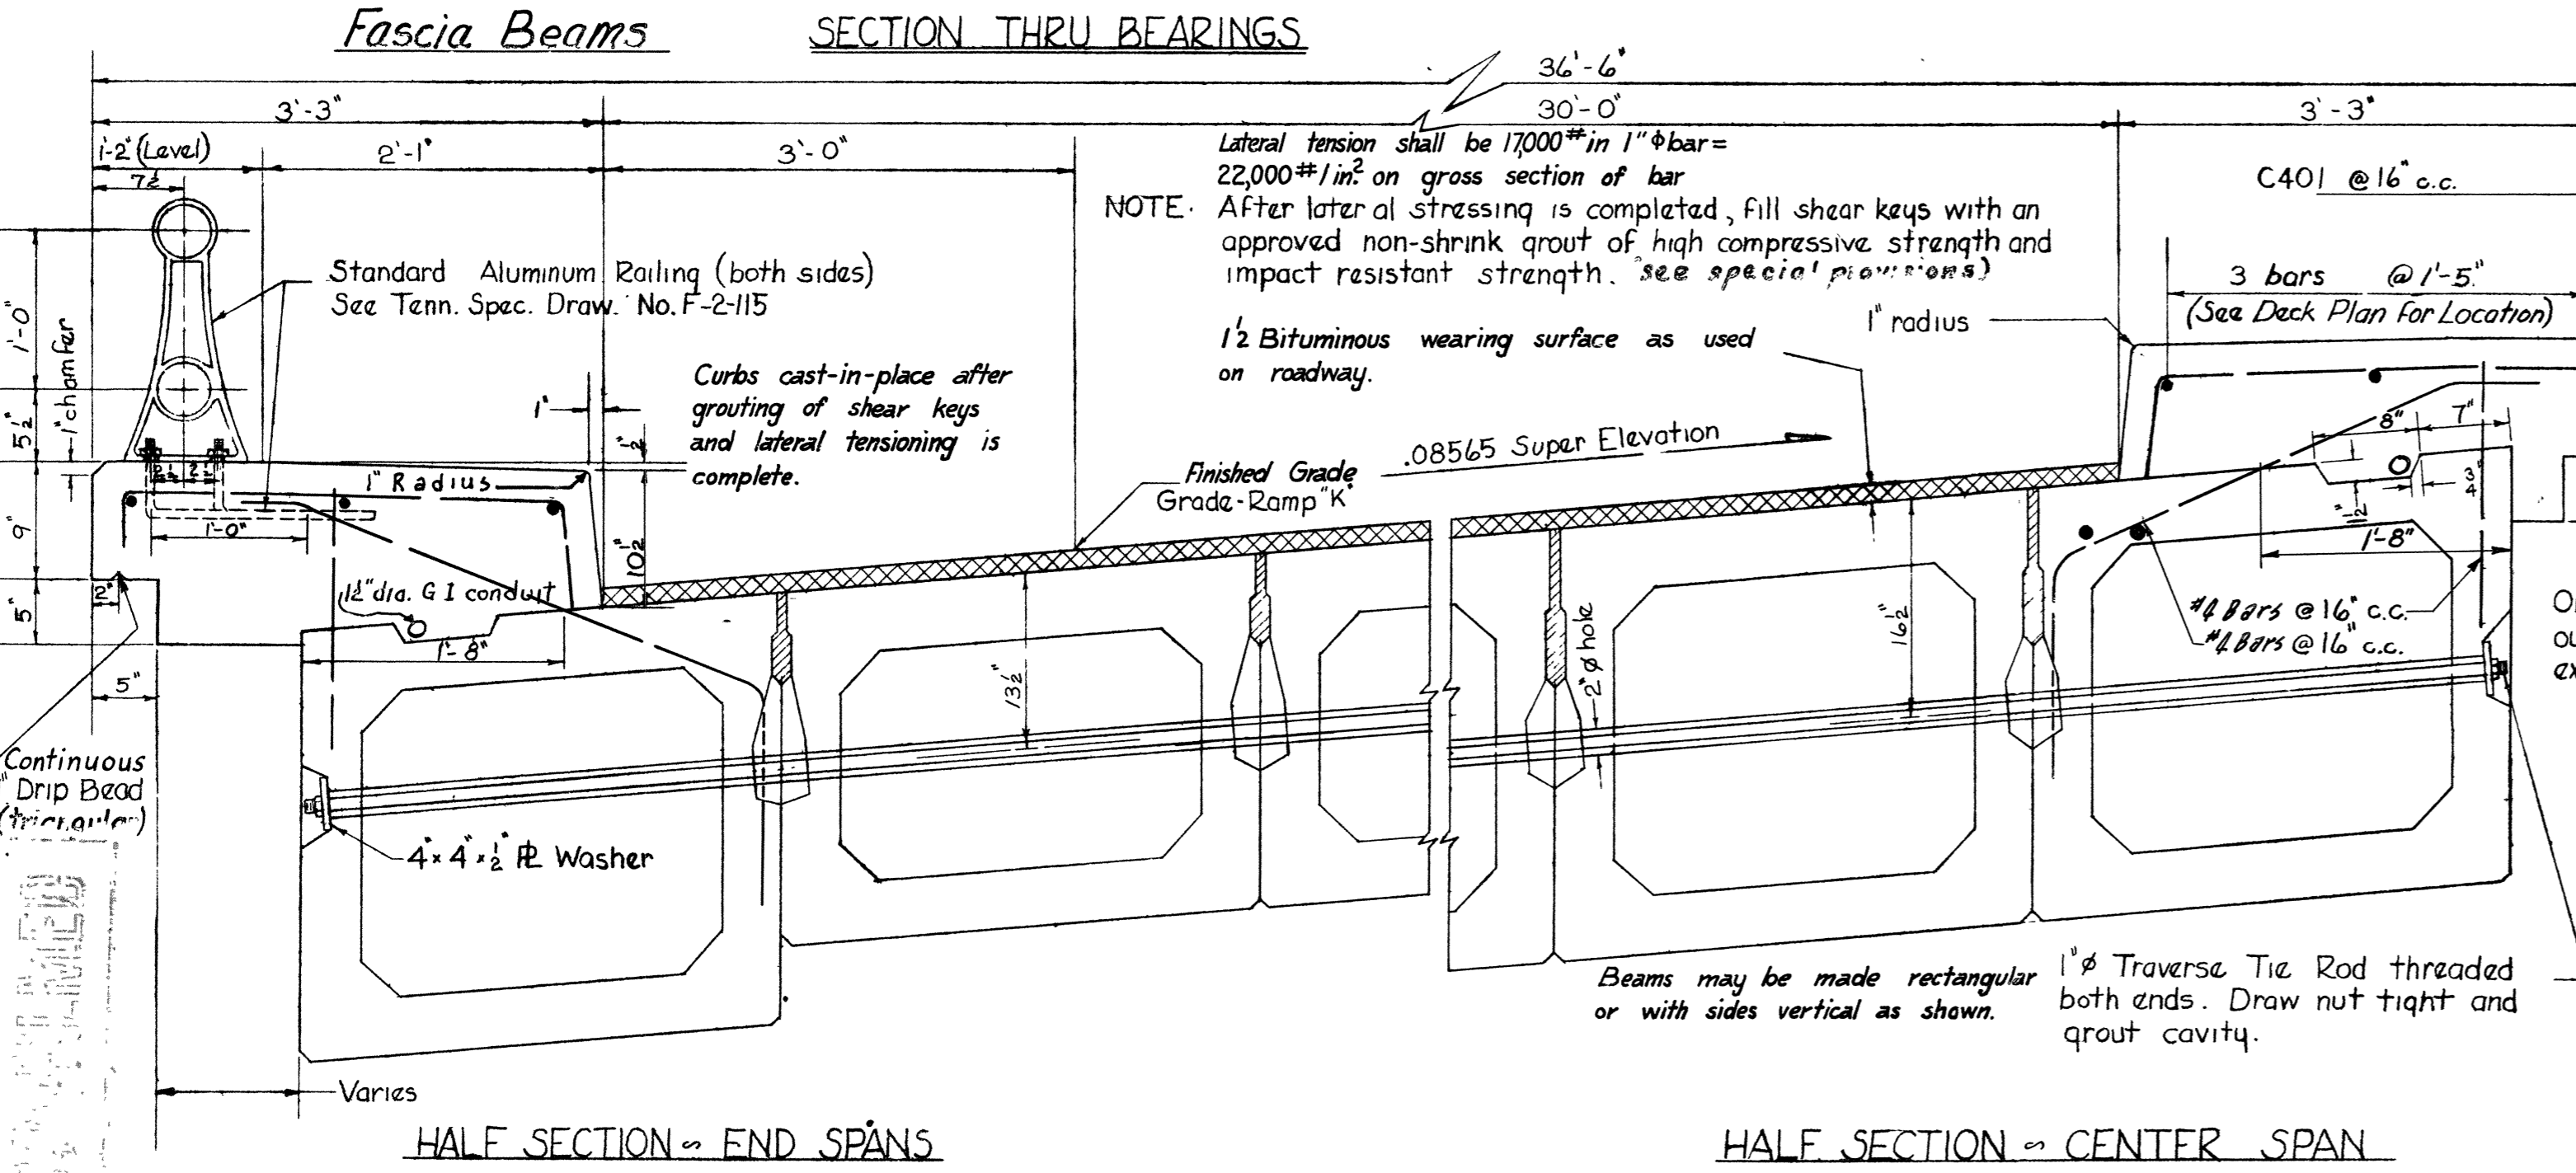 Fascia Beams
SECTION THRU BEARINGS
36'-6"
3'-3"
30'-0"
3'-3"
1'-2" (Level)
2'-1"
3'-0"
7½
Lateral tension shall be 17,000# in 1"ϕ bar=
22,000#/in.² on gross section of bar
NOTE. After lateral stressing is completed, fill shear keys with an
approved non-shrink grout of high compressive strength and
impact resistant strength. see special provisions)
C401 @ 16" c.c.
3 bars @ 1'-5"
(See Deck Plan For Location)
Standard Aluminum Railing (both sides)
See Tenn. Spec. Draw. No. F-2-115
1'-0"
5½"
1" chamfer
9"
5"
1½ Bituminous wearing surface as used
on roadway.
1" radius
Curbs cast-in-place after
grouting of shear keys
and lateral tensioning is
complete.
1"
½"
8"
7"
.08565 Super Elevation
Finished Grade
Grade-Ramp "K"
1" Radius
1'-0"
10½"
¾"
1½"
1'-8"
2"
1½" dia. G I conduit
1'-8"
5"
13½"
2" ϕ hole
16½"
#4 Bars @ 16" c.c.
#4 Bars @ 16" c.c.
Continuous
Drip Bead
(triangular)
4" x 4" x ½" PL Washer
Beams may be made rectangular
or with sides vertical as shown.
1" ϕ Traverse Tie Rod threaded
both ends. Draw nut tight and
grout cavity.
Varies
HALF SECTION ~ END SPANS
HALF SECTION ~ CENTER SPAN